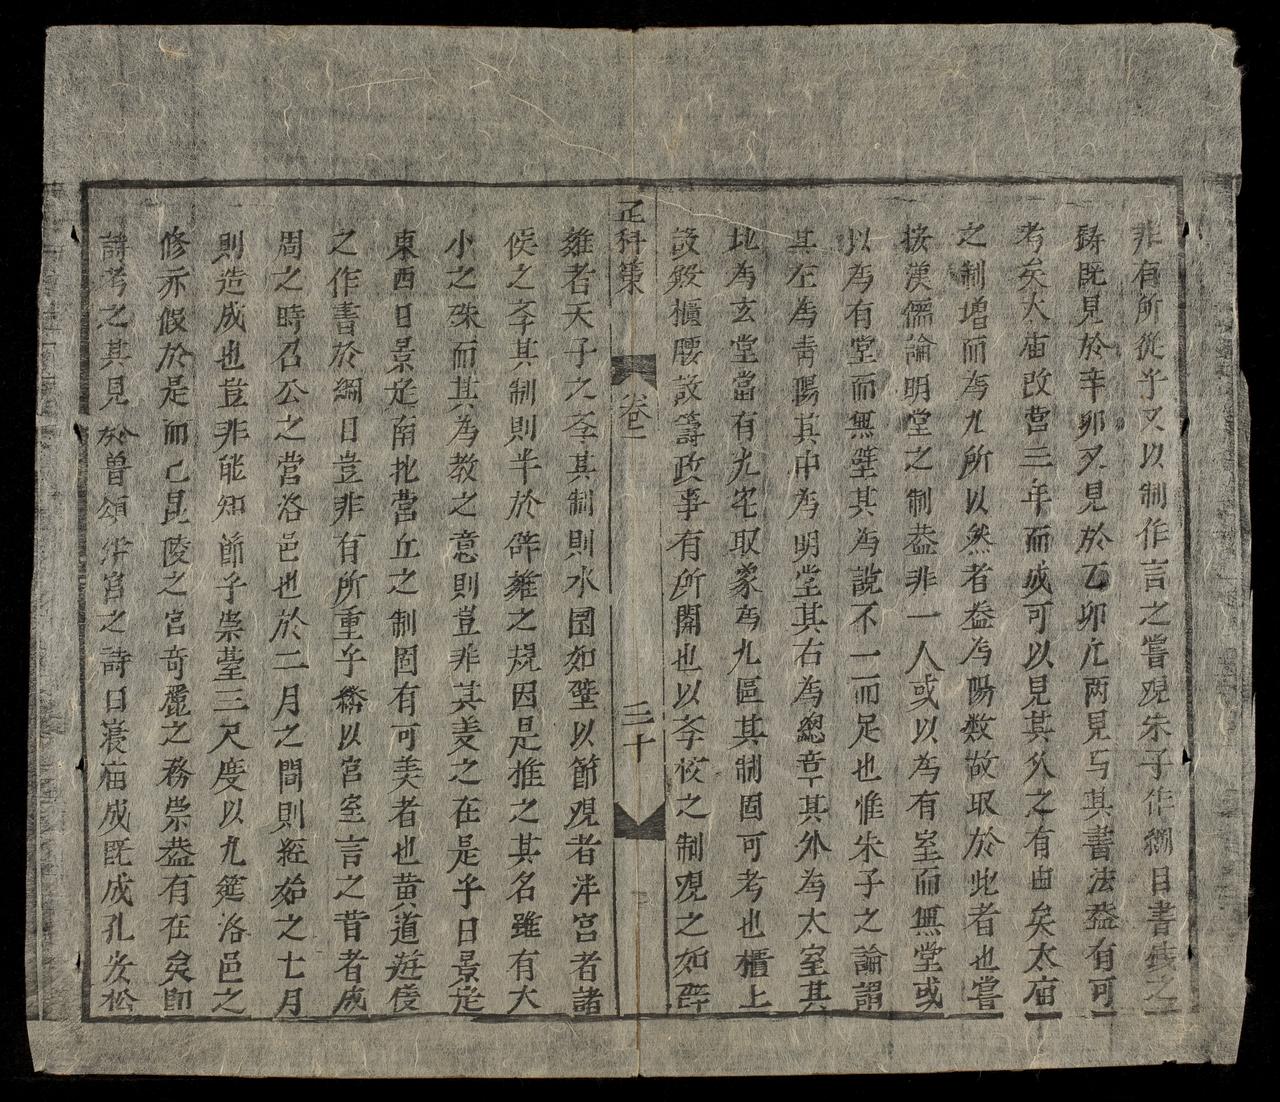 非有所從乎又以制作言之嘗覌朱子作綱目書
鋳既見於辛卯又見於乙卯凢两見与其書法盖有可
考矣大庙改营三年而成可以見其久之有由矣太庙
之制増而為九所以然者盖為陽数故取於此者也嘗
按漢儒論明堂之制盖非一人或以為有室而無堂或
以為有堂而無壁其為說不一二而足也惟朱子之論謂
其左為青陽其中為明堂其右為總章其外為太室其
北為玄堂當有九宅取象為九區其制固可考也櫃上
設殿櫃腰設籌政事有所開也以斈校之制覌之如辟
正科策 卷二 三十
雍者天子之斈其制則水圎如璧以節覌者泮宮者諸
侯之斈其制則半於辟雍之規因是推之其名雖有大
小之殊而其為教之意則豈非其美之在是乎日景定
東西日景定南北营丘之制固有可美者也黄道遊儀
之作書於綱目豈非有所重乎然以宮室言之昔者成
周之時召公之营洛邑也於二月之間則経始之七月
則造成也豈非能知節乎崇臺三尺度以九筵洛邑之
修亦假於是而已昆陵之宮奇麗之務崇盖有在矣即
詩考之其見於曽頌泮宮之詩曰寝庙成既成孔安松